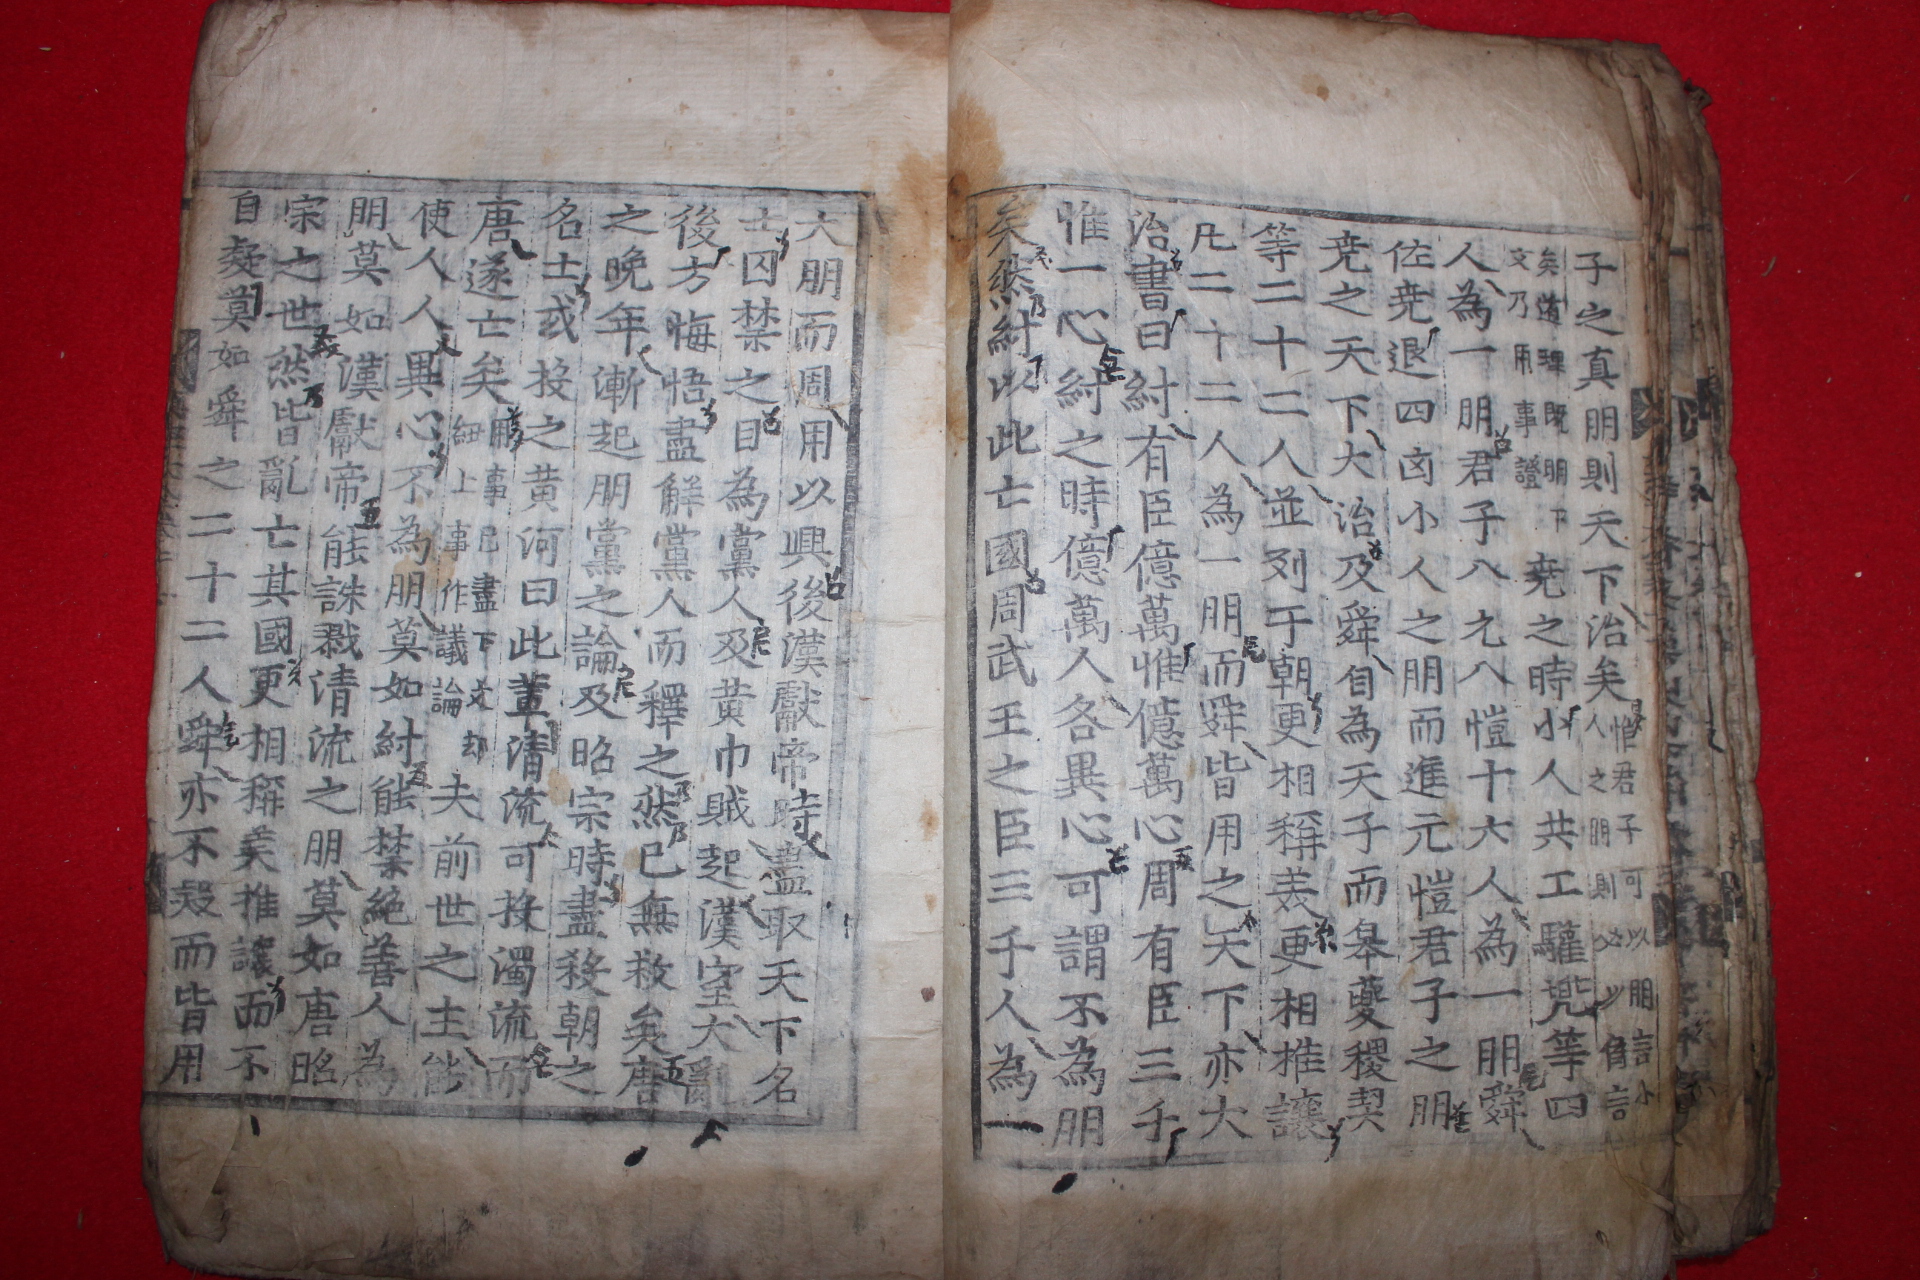 子之真朋則天下治矣惟君子可以朋言小人之朋則必以僞言
矣道理既明下文乃用事證堯之時小人共工驩兜等四
人為一朋君子八元八愷十六人為一朋舜
佐堯退四凶小人之朋而進元愷君子之朋
堯之天下大治及舜自為天子而皋夔稷契
等二十二人並列于朝更相稱美更相推讓
凡二十二人為一朋而舜皆用之天下亦大
治書曰紂有臣億萬惟億萬心周有臣三千
惟一心紂之時億萬人各異心可謂不為朋
矣然紂以此亡國周武王之臣三千人為一
大朋而周用以興後漢獻帝時盡取天下名
士囚禁之目為黨人及黃巾賊起漢室大亂
後方悔悟盡解黨人而釋之然已無救矣唐
之晚年漸起朋黨之論及昭宗時盡殺朝之
名士或投之黃河曰此輩清流可投濁流而
唐遂亡矣用事已盡下文却紐上事作議論夫前世之主能
使人人異心不為朋莫如紂能禁絕善人為
朋莫如漢獻帝能誅戮清流之朋莫如唐昭
宗之世然皆亂亡其國更相稱美推讓而不
自疑莫如舜之二十二人舜亦不疑而皆用